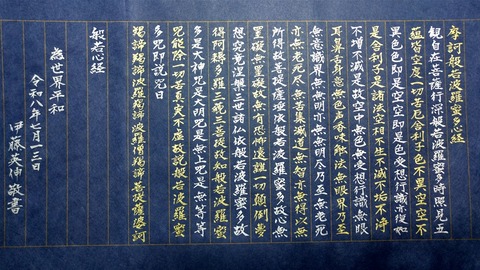 摩訶般若波羅蜜心経
観自在菩薩行深般若波羅蜜多時照見五
蘊皆空度一切苦厄舎利子色不異空空不
異色色即是空空即是色受想行識亦復如
是舎利子是諸法空相不生不滅不垢不浄
不増不減是故空中無色無受想行識無眼
耳鼻舌身意無色声香味触法無眼界乃至
無意識界無無明亦無無明尽乃至無老死
亦無老死尽無苦集滅道無智亦無得以無
所得故菩提薩埵依般若波羅蜜多故心無
罣礙無罣礙故無有恐怖遠離一切顛倒夢
想究竟涅槃三世諸仏依般若波羅蜜多故
得阿耨多羅三藐三菩提故知般若波羅蜜
多是大神呪是大明呪是無上呪是無等等
呪能除一切苦真実不虚故説般若波羅蜜
多呪即説呪曰
羯諦羯諦波羅羯諦波羅僧羯諦菩提薩婆訶
般若心経
為世界平和
令和八年七月一三日
伊藤英伸 敬書